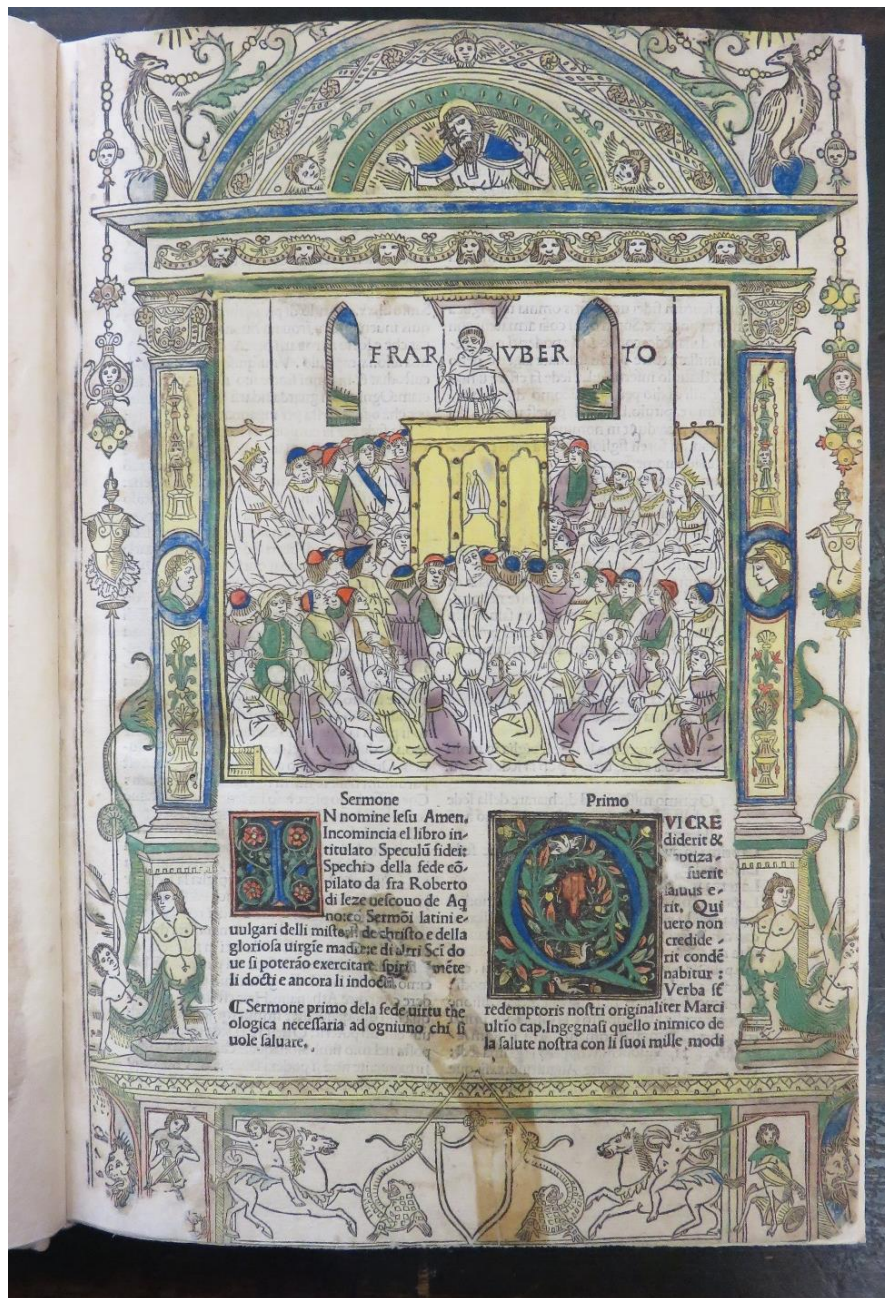 FRAR VBER TO
Sermone
IN nomine Iesu Amen.
Incomincia el libro in-
titulato Speculũ fidei:
Spechio della fede cõ-
pilato da fra Roberto
di leze uescouo de Aq
no: Sermõi latini e-
uulgari delli de christo e della
gloriosa uirgĩe di Scĩ do
ue si poterão exercitare mẽte
li docti e ancora li
¶Sermone primo dela fede uirtu the
ologica necessaria ad ogniuno chi si
uole saluare.
Primo
QVI CRE
diderit &
fuerit
e-
rit. Qui
uero non
credide-
rit condẽ
nabitur:
Verba
redemptoris nostri originaliter Marci
ultĩo cap. Ingegnasi quello inimico de
la salute nostra con li suoi mille modi